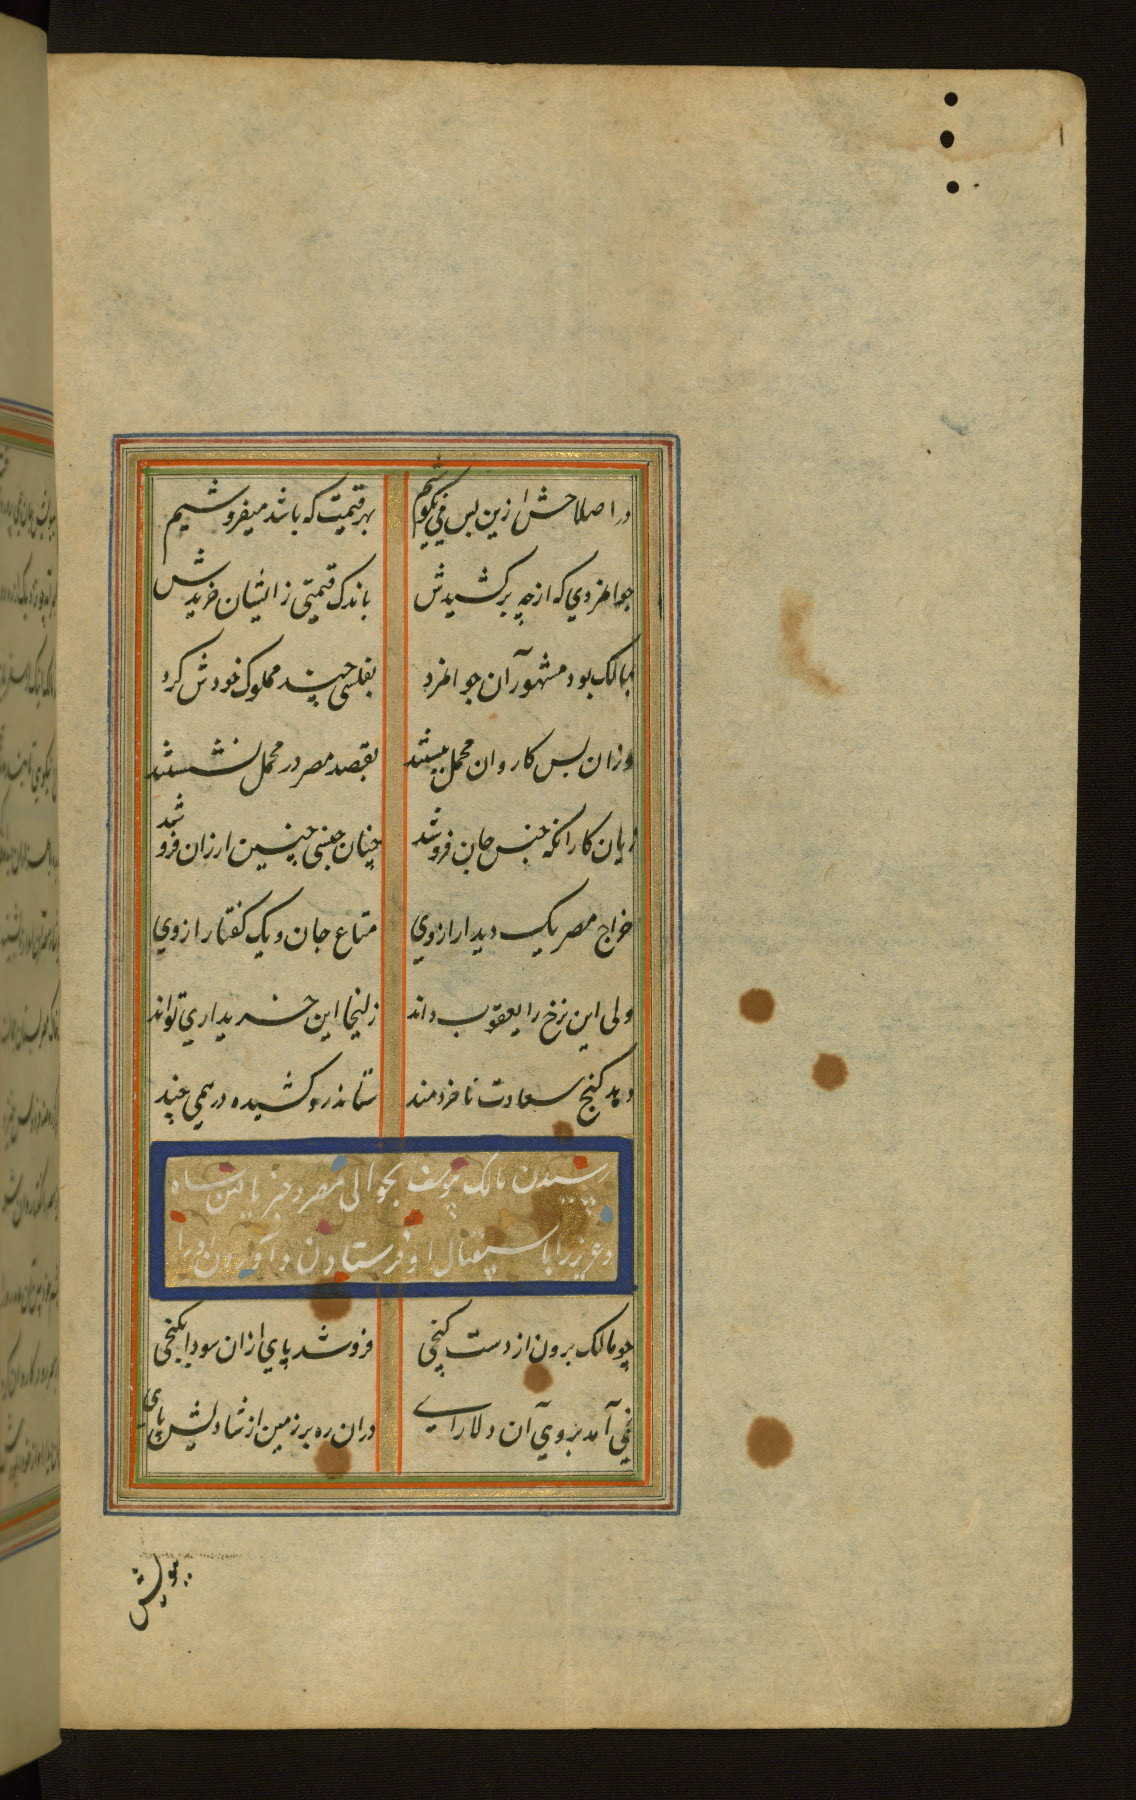 در اصلاحش ازین پس می نکوشیم بهر قیمت که باشد میفروشیم
جوانمردی که از چه برکشیدش باندک قیمتی ز ایشان خریدش
بمالک بود مشهور آن جوانمرد بفلسی چند مملوک خودش کرد
وزان پس کاروان محمل ببستند بقصد مصر در محمل نشستند
زیان کار آنکه جنس جان فروشد چنان جنسی چنین ارزان فروشد
خراج مصر یک دیدار از وی متاع جان و یک گفتار از وی
ولی این نرخ را یعقوب داند زلیخا این خریداری تواند
دهد گنج سعادت ناخردمند ستاند در و کشیده درهمی چند
رسیدن مالک یوسف بحوالی مصر و خبر یافتن شاه
و عزیز را باستقبال او فرستادن و آوردن او را
چو مالک برون از دست رنجی فروشد پای ازان سودا بگنجی
نمی آمد بروی آن دلارای دران ره بر زمین از شادیش پای
ببویش